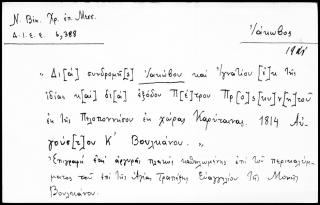 Ν. Βία. Χρ. ἐπ. Μπεε.
Δ.Ι.Ε.Ε. 6,388
Ἰάκωβος
19ος
„ Δι[ὰ] συνδρομῆ[ς] Ἰακώβου καὶ Ἰγνατίου [ἐ]κ τῆς
ἰδίας κ[αὶ] δι[ὰ] ἐξόδου Π[έ]τρου Πρ[ο]σκυν[η]τοῦ
ἐκ τῆς Πελοποννήσου ἐκ χώρας Καρύταινας. 1814 Αὐ-
γούσ[τ]ου Κ΄ Βουλκάνου. „
Ἐπιγραφὴ ἐπὶ ἀργυρᾶς πλακὸς καθηλωμένης ἐπὶ τοῦ περικαλύμ-
ματος τοῦ ἐπὶ τῆς Ἁγίας Τραπέζης Εὐαγγελίου τῆς Μονῆς
Βουλκάνου.